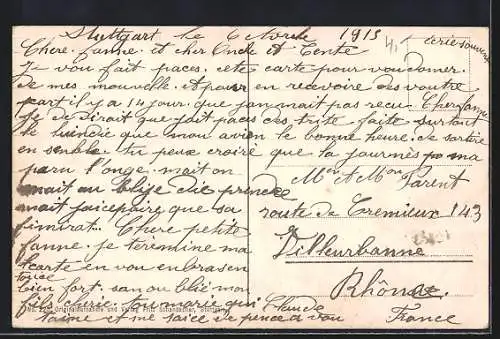 Stuttgart le 6 Octobre 1913
Chere fanne. et cher Oncle et Tente
Je vou fait paces. cete carte pour vou domer
de mes mouvelle. et pour en recevoire des voutre
part il y a 14 jour. que jan nait pas recu. Cher fanne
je de dirait que fait paces des triste faite surtout
le que nou avien le bonne heure. de sortire
en senble. tu peux croire que la journés ma
paru l'onge. mait on
mait au blije die prendre
mait j'aicepaire que sa
finirat. Chere petite
fanne. je teremine ma
carte en vou enbrasen
touce
bien fort. san ou blié mon
fils cherie. Tou marie qui
t'aime et me saice de pence a vou
Claude
écrie souvent
Mr et Mme Parent
route de Cremieux 143
Villeurbanne
Rhône.
France